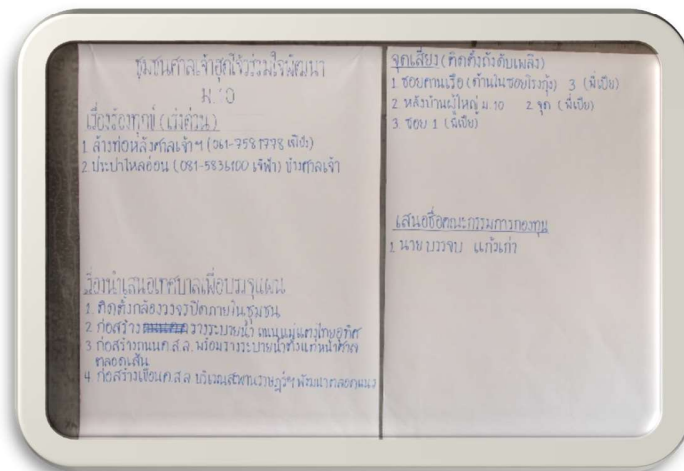 ชุมชนศาลเจ้าฮุดโจ้วร่วมใจพัฒนา
ม.10
เรื่องร้องทุกข์ (เร่งด่วน)
1. ล้างท่อหลังศาลเจ้าฯ (061-7581778
2. ประปาไหลอ่อน (081-5836100 เจ๊ฬา) ข้างศาลเจ้า
เรื่องนำเสนอเทศบาลเพื่อบรรจุแผน
1. ติดตั้งกล้องวงจรปิดภายในชุมชน
2 ก่อสร้าง รางระบายน้ำ ถนนแม่แตงไทยอุทิศ
3 ก่อสร้างถนนค.ส.ล. พร้อมรางระบายน้ำตั้งแต่หน้าศาล
ตลอดเส้น
4 ก่อสร้างเขื่อนค.ส.ล บริเวณสะพานราษฎร์ฯ
จุดเสี่ยง (ติดตั้งถังดับเพลิง)
1 ซอยคานเรือ (ด้านในซอยโรงกุ้ง) 3 (พี่เปีย)
2. หลังบ้านผู้ใหญ่ ม.10 2 จุด (พี่เปีย)
3. ซอย 1 (พี่เปีย)
เสนอชื่อคณะกรรมการกองทุน
1 นาย บรรจบ แก้วเก่า